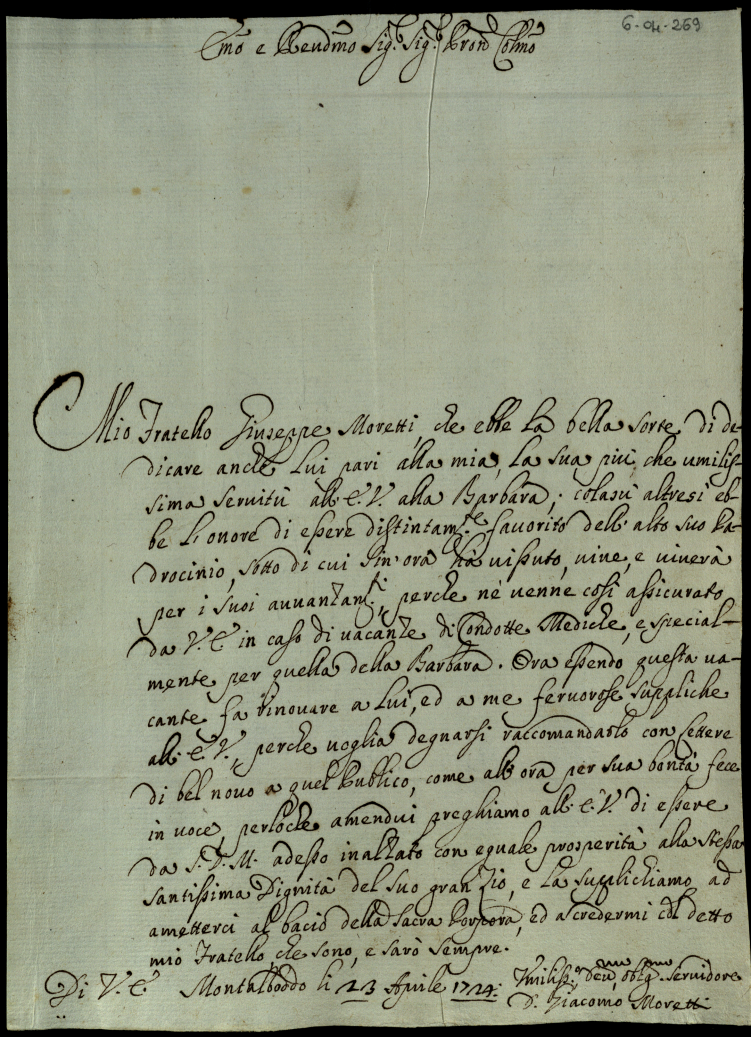 6-04-269
Emo e Rendmo Sig.r Sig.r Pron Colmo
Mio Fratello Giuseppe Moretti che ebbe la bella sorte di de-
dicare anche Lui pari alla mia, la sua più che umilis-
sima servitù all'E.V. alla Barbara, colasù altresi eb-
be l'onore di essere distintam.te favorito dell'alto suo Pa-
drocinio, sotto di cui sin'ora hà vissuto, vive, e viverà
per i suoi avvantam.ti, perche nè venne così assicurato
da V.E. in caso di vacanze di Condotte Mediche, e special-
mente per quella della Barbara. Ora essendo questa va-
cante fa rinovare a Lui, ed a me fervorose suppliche
all'E.V., perche voglia degnarsi raccomandarlo con lettere
di bel novo a quel Publico, come all'ora per sua bontà fece
in voce, perloche amendui preghiamo all'E.V. di essere
da S.D.M. adesso inalzato con eguale prosperità alla stessa
santissima Dignità del suo gran Zio, e la supplichiamo ad
ametterci al bacio della Sacra Porpora, ed a credermi col detto
mio Fratello che sono, e sarò sempre.
Di V.E. Montalboddo li 23 Aprile 1724.
Vmiliss.o deu.mo oblig.mo servidore
D. Giacomo Moretti